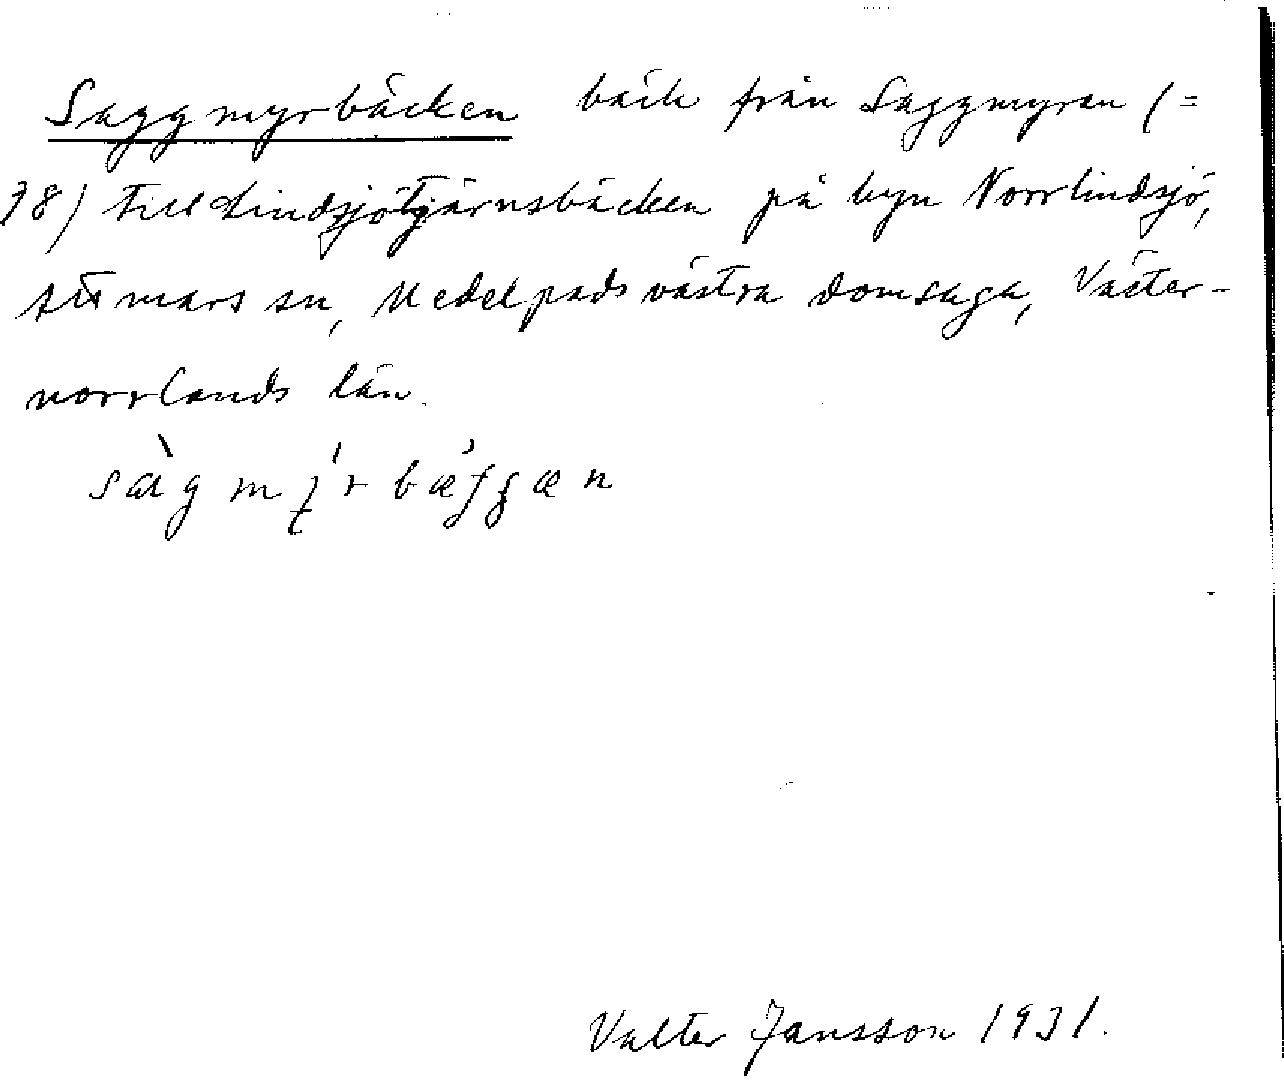 Saggmyrbäcken bäck från Saggmyran (=
78) till Lindsjötjärnsbäcken på byn Norrlindsjö,
Attmars sn, Medelpads västra domsaga, Väster-
norrlands län.
Valter Jansson 1931.